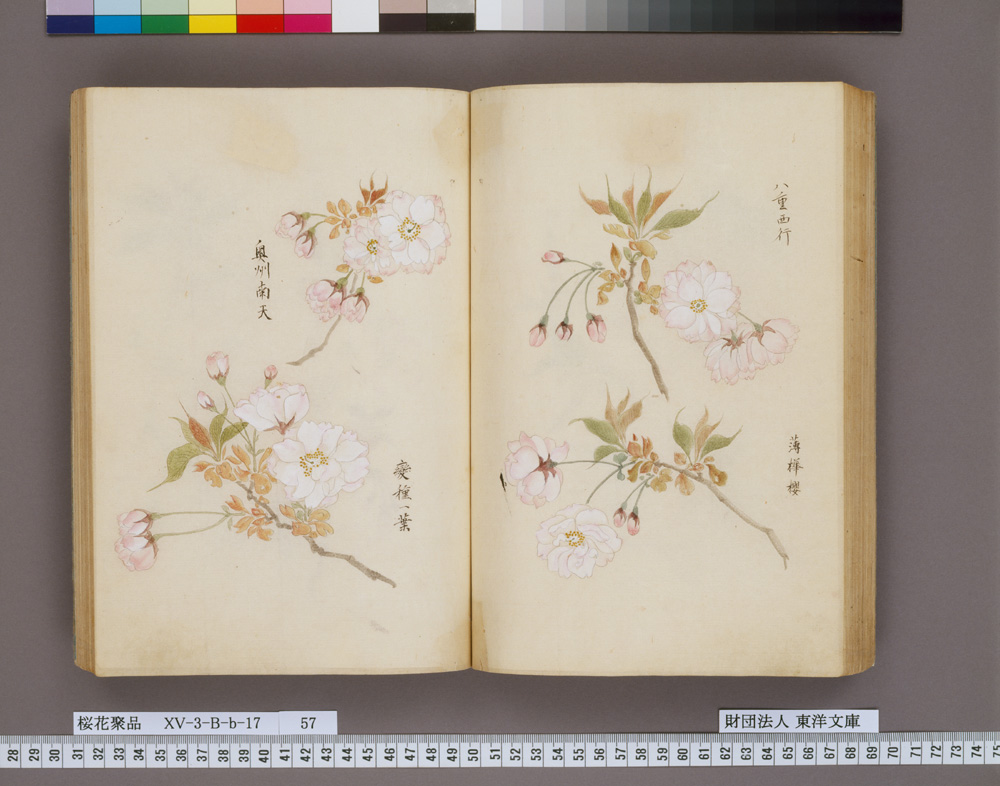 八重西行
薄樺櫻
奥州南天
変種一葉
桜花聚品 XV-3-B-b-17 57
財団法人 東洋文庫
28 29 30 31 32 33 34 35 36 37 38 39 40 41 42 43 44 45 46 47 48 49 50 51 52 53 54 55 56 57 58 59 60 61 62 63 64 65 66 67 68 69 70 71 72 73 74 75